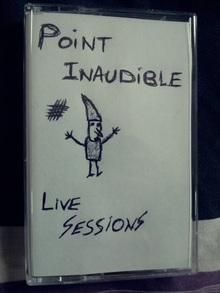 POINT
INAUDIBLE
LIVE
SESSIONS